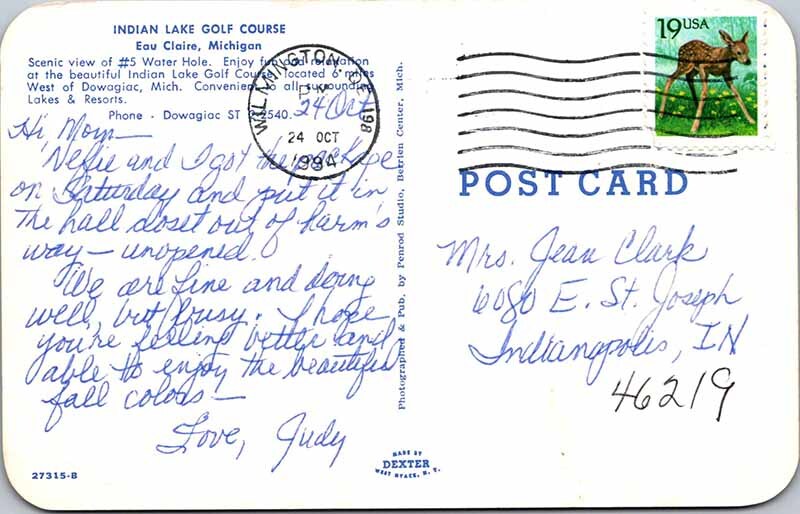 INDIAN LAKE GOLF COURSE
Eau Claire, Michigan
Scenic view of #5 Water Hole. Enjoy fun and relaxation
at the beautiful Indian Lake Golf Course located 6 miles
West of Dowagiac, Mich. Convenient to all surrounding
Lakes & Resorts.
Phone - Dowagiac ST 2-5540.
24 Oct
Hi Mom—
Nellie and I got the package
on Saturday and put it in
the hall closet out of harm's
way — unopened.
We are fine and doing
well, but busy. I hope
you're feeling better and
able to enjoy the beautiful
fall colors —
Love, Judy
27315-B
Photographed & Pub. by Penrod Studio, Berrien Center, Mich.
MADE BY
DEXTER
WEST NYACK, N. Y.
WILMINGTON DE 198
24 OCT
1994
19 USA
POST CARD
Mrs. Jean Clark
6080 E. St. Joseph
Indianapolis, IN
46219